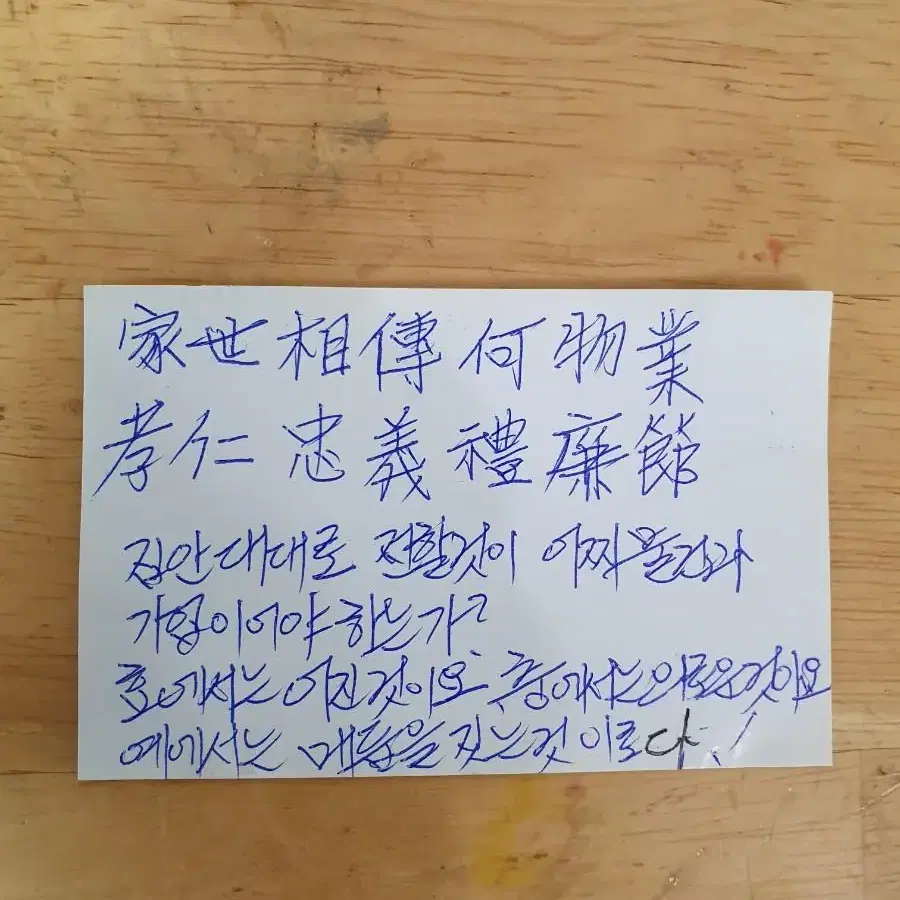 家世相傳何物業
孝仁忠義禮廉節
집안대대로 전할것이 어찌물건과
가업이어야 하는가?
효에서는 어진것이요 충에서는의로운것이요
예에서는 매듭을 짓는것 이로다.!